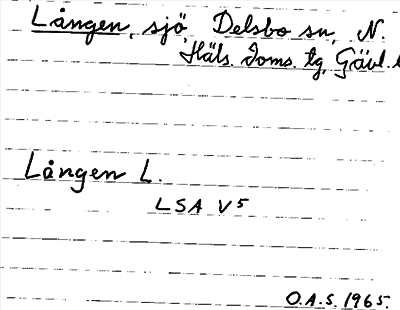 Lången, sjö Delsbo sn, N.
Häls. Doms. tg, Gävl.
Lången L.
LSA V5
O.A.S. 1965.